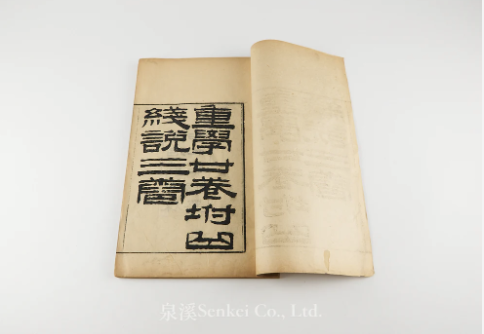 重學廿卷坿曲
綫說三
泉溪Senkei Co., Ltd.